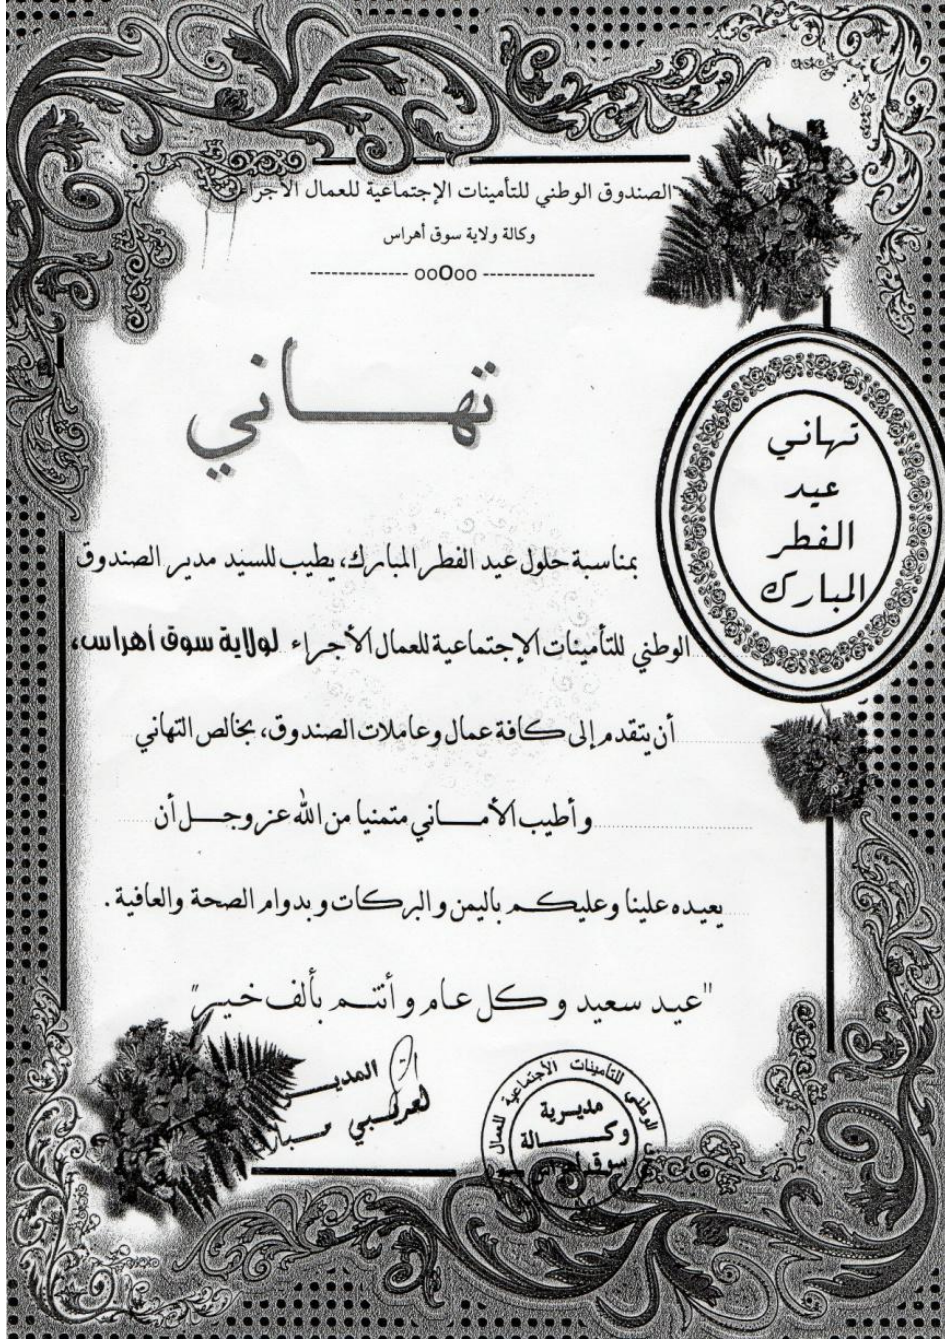 الصندوق الوطني للتأمينات الإجتماعية للعمال الأجراء
وكالة ولاية سوق أهراس
------------- ooOoo ---------------
تهـــــاني
تهاني
عيد
الفطر
المبارك
بمناسبة حلول عيد الفطر المبارك، يطيب للسيد مدير الصندوق
الوطني للتأمينات الإجتماعية للعمال الأجراء لولاية سوق أهراس،
أن يتقدم إلى كافة عمال وعاملات الصندوق، بخالص التهاني
وأطيب الأمـــاني متمنيا من الله عز وجـــل أن
يعيده علينا وعليكم باليمن والبركات وبدوام الصحة والعافية.
"عيد سعيد وكل عام وأنتم بألف خير"
المديـــر
لعريبي
الوطني للتأمينات الأجتماعية للعمال
مديرية
وكـــالة
سوق